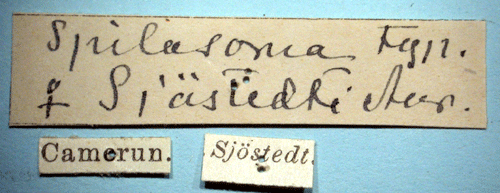 Spilosoma Typ.
♀ Sjöstedti Aur.
Camerun.
Sjöstedt.